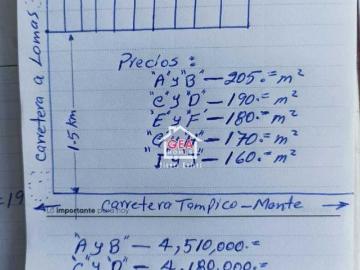 Carretera a Lomas
1.5 km
Precios :
"A" y "B" — 205.= m²
"C" y "D" — 190.= m²
"E" y "F" — 180.= m²
— 170.= m²
— 160.= m²
GEA
Carretera Tampico - Mante
Lo importante para hoy
"A y B" — 4,510,000.=
"C" y "D" — 4,180,000.=